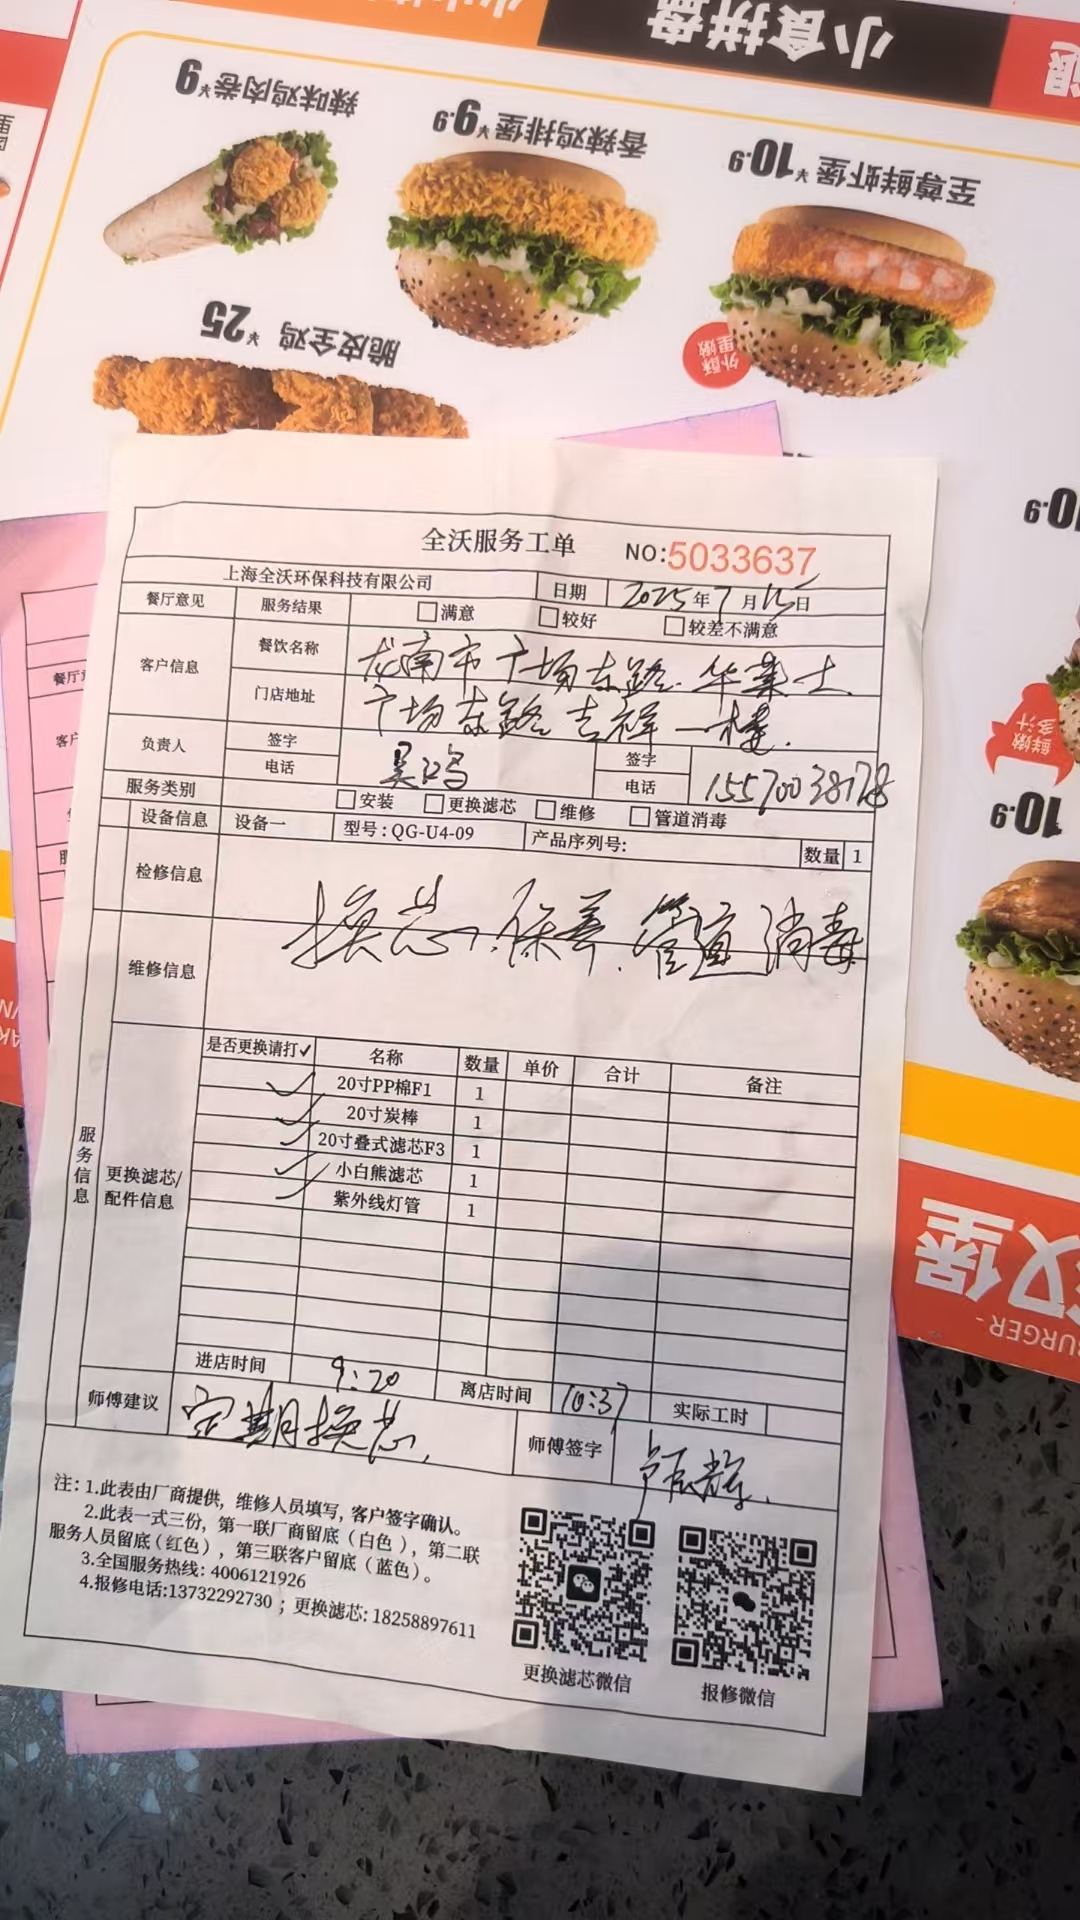 小食拼盘
辣味鸡肉卷 9
香辣鸡排堡 9.9
至尊鲜虾堡 10.9
脆皮全鸡 25
外酥里嫩
10.9
鲜嫩多汁
10.9
汉堡
BURGER
全沃服务工单 NO:5033637
上海全沃环保科技有限公司 日期 2025年7月15日
餐厅意见 服务结果 □满意 □较好 □较差不满意
客户信息 餐饮名称 龙南市广场东路华莱士
门店地址 广场东路吉祥一楼.
负责人 签字 签字
电话 电话 15570038178
服务类别 □安装 □更换滤芯 □维修 □管道消毒
设备信息 设备一 型号:QG-U4-09 产品序列号: 数量 1
检修信息
换芯.保养.管道消毒
维修信息
服务信息
更换滤芯/配件信息
是否更换请打✓ 名称 数量 单价 合计 备注
✓ 20寸PP棉F1 1
✓ 20寸炭棒 1
✓ 20寸叠式滤芯F3 1
✓ 小白熊滤芯 1
✓ 紫外线灯管 1
进店时间 9:20 离店时间 10:37 实际工时
师傅建议 定期换芯. 师傅签字
注:1.此表由厂商提供,维修人员填写,客户签字确认。
2.此表一式三份,第一联厂商留底(白色),第二联
服务人员留底(红色),第三联客户留底(蓝色)。
3.全国服务热线:4006121926
4.报修电话:13732292730;更换滤芯:18258897611
更换滤芯微信 报修微信